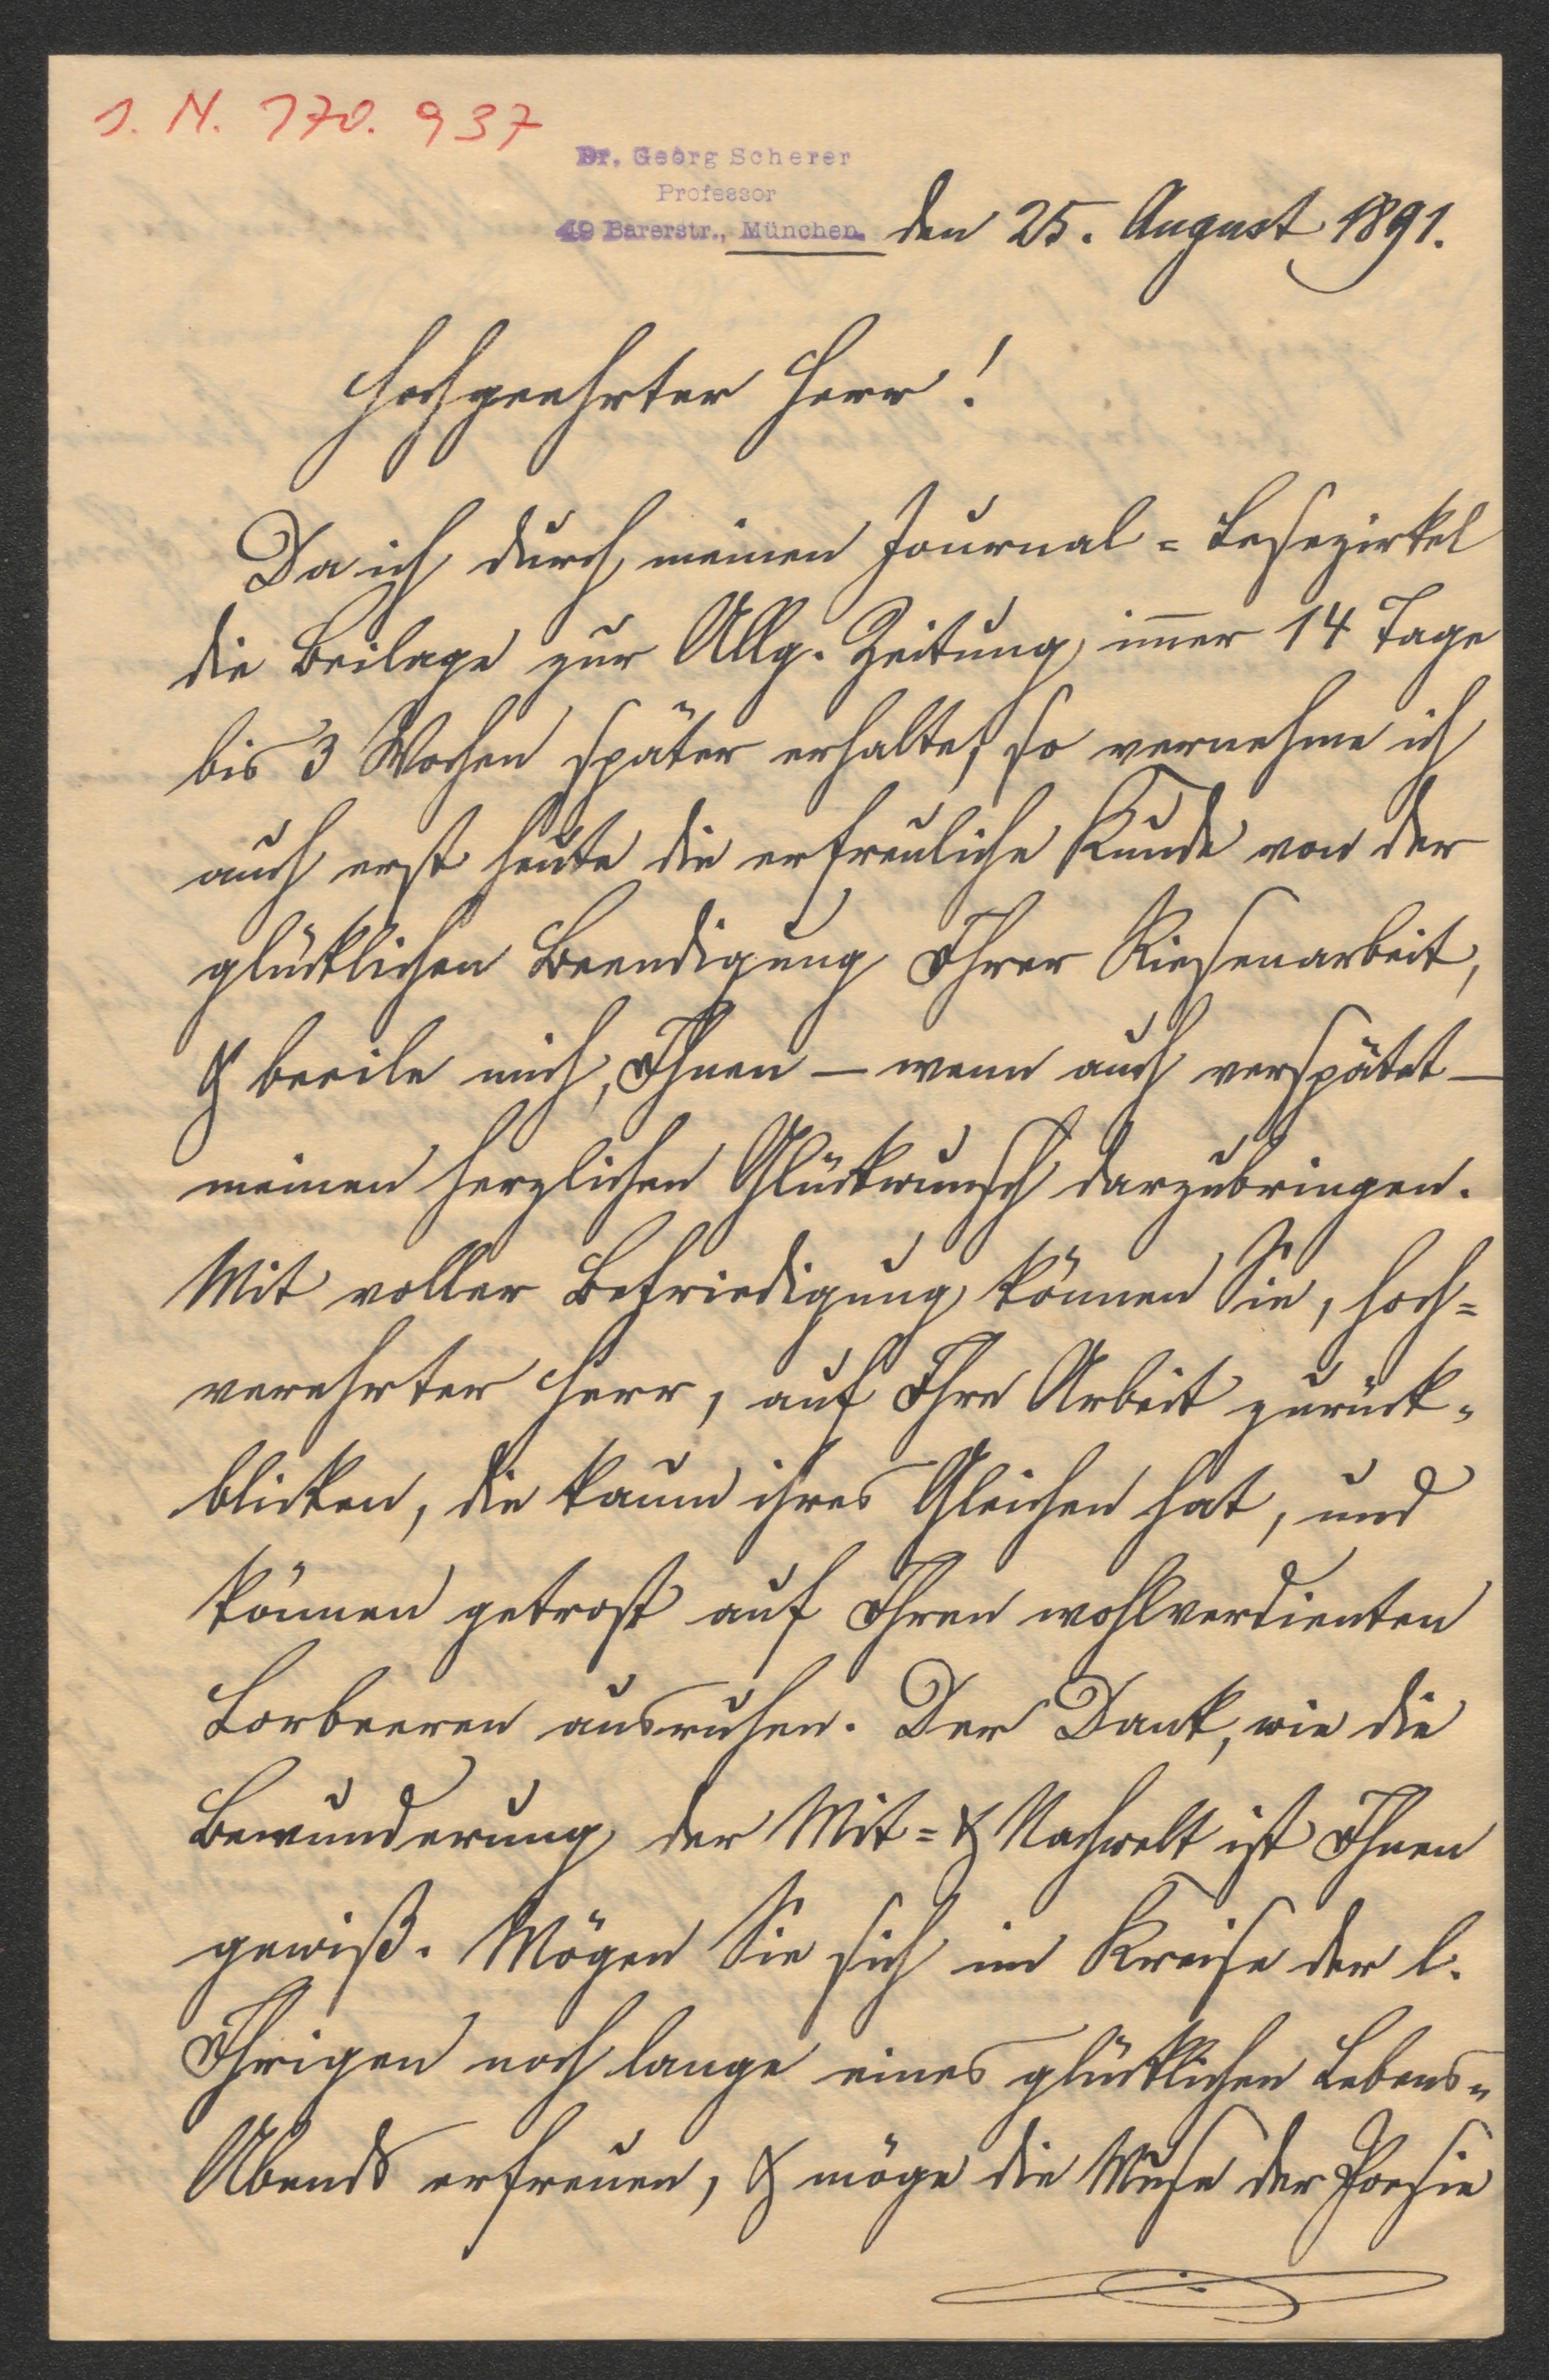 J. N. 170.937
Dr. Georg Scherer
Professor
49 Barerstr., München.
den 25. August 1891.
Hochgeehrter Herr!
Da ich durch meinen Journal=Lesezirkel
die Beilage zur Allg. Zeitung im̄er 14 Tage
bis 3 Wochen später erhalte, so vernehme ich
auch erst heute die erfreuliche Kunde von der
glücklichen Beendigung Ihrer Riesenarbeit,
& beeile mich, Ihnen — wenn auch verspätet —
meinen herzlichen Glückwunsch darzubringen.
Mit voller Befriedigung können Sie, hoch=
verehrter Herr, auf Ihre Arbeit zurück=
blicken, die kaum ihres Gleichen hat, und
können getrost auf Ihren wohlverdienten
Lorbeeren ausruhen. Der Dank, wie die
Bewunderung der Mit= & Nachwelt ist Ihnen
gewiß. Mögen Sie sich im Kreise der l.
Ihrigen noch lange eines glücklichen Lebens=
Abends erfreuen, & möge die Muse der Poesie